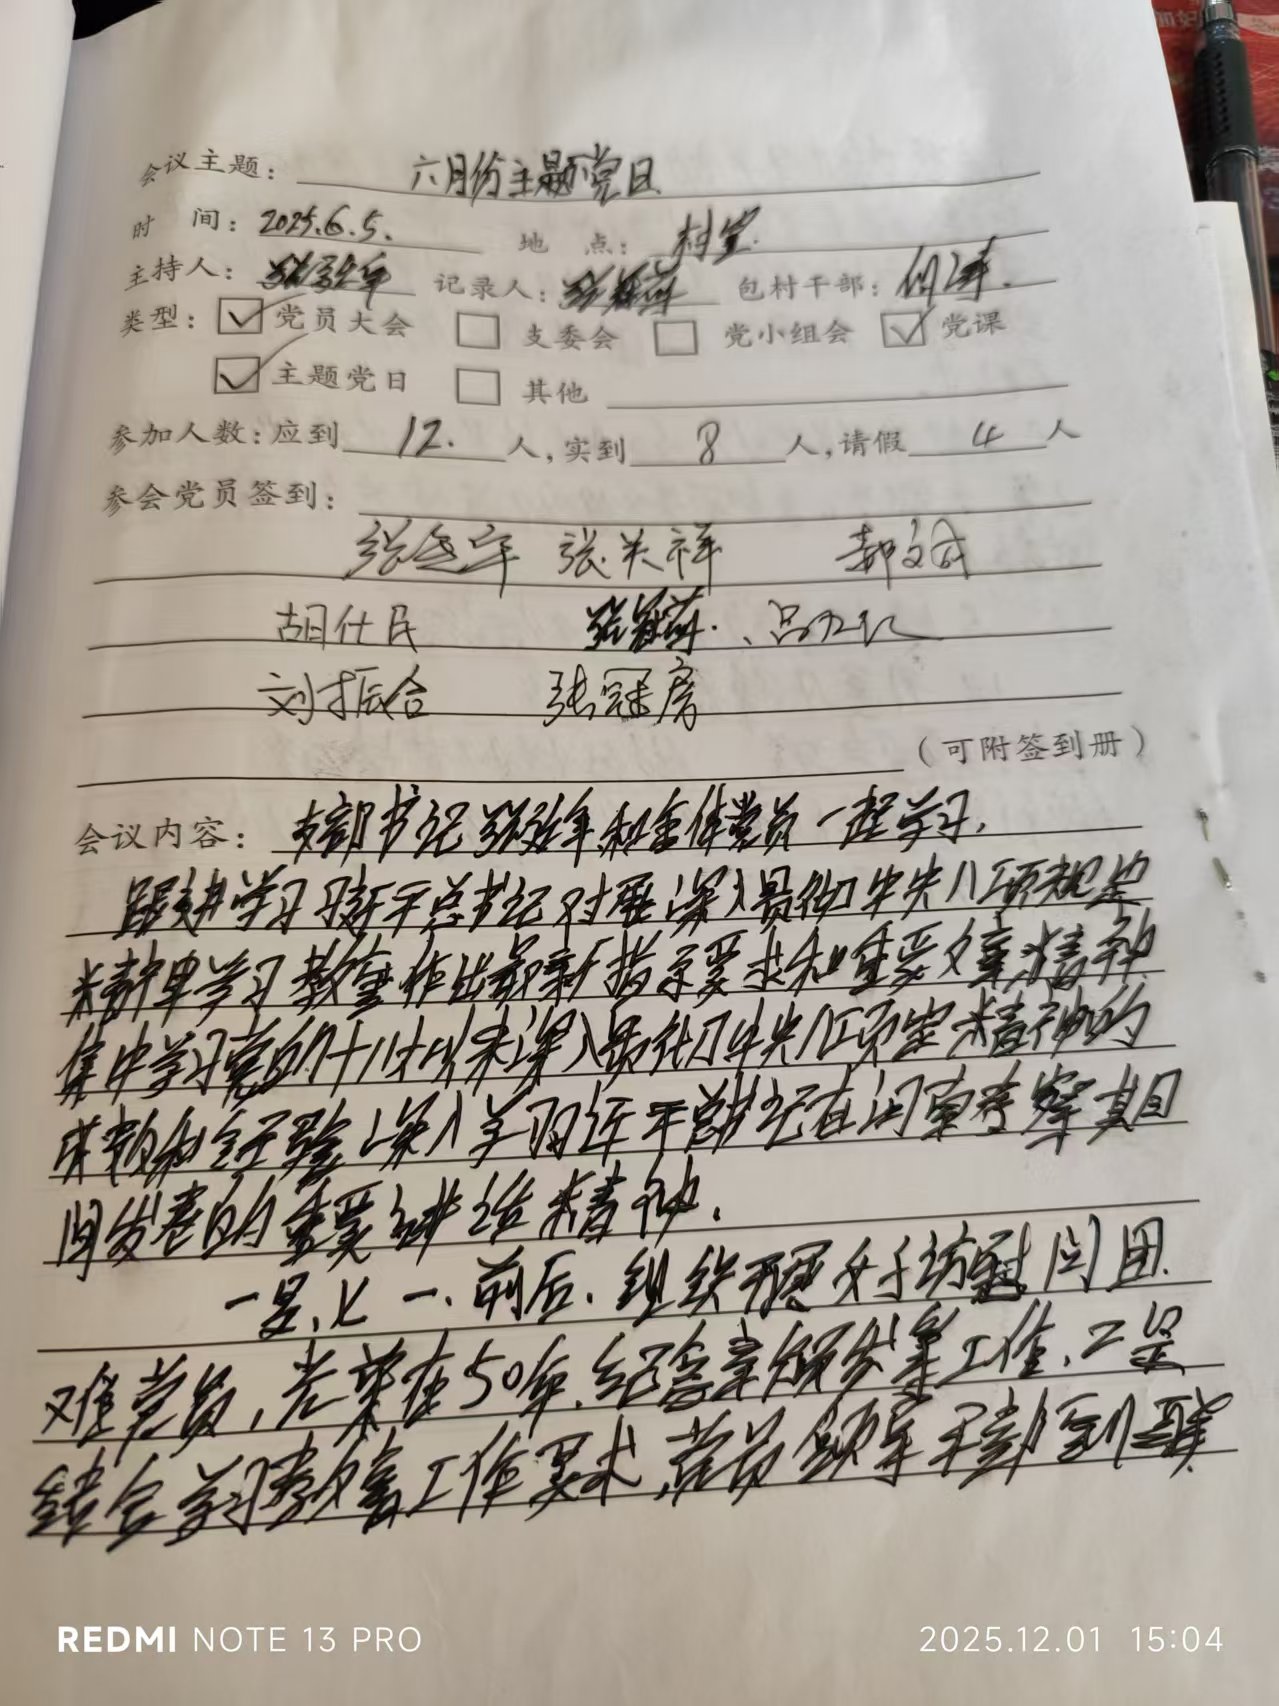 会议主题：六月份主题党日
时 间：2025.6.5. 地 点：村室.
主持人： 记录人： 包村干部：
类型：☑党员大会 □支委会 □党小组会 ☑党课
☑主题党日 □其他
参加人数：应到12.人，实到8人，请假4人
参会党员签到：
张 年 张关祥 郝文成
胡仕民
刘振合 张冠房
（可附签到册）
会议内容：支部书记 和全体党员一起学习.
跟进学习习近平总书记对 深入贯彻中央八项规定
精神学习教育作出最新指示要求和重要文章精神
集中学习党的十八大以来深入贯彻中央八项定精神的
成效和经验 深入学习近平总书记在河南考察 期
间发表的重要讲话精神.
一是,七一.前后.组织开展 访慰问困
难党员,光荣在50年.纪念章颁发等工作,二是
结合学习教育工作要求,党员领导干部到联
REDMI NOTE 13 PRO 2025.12.01 15:04